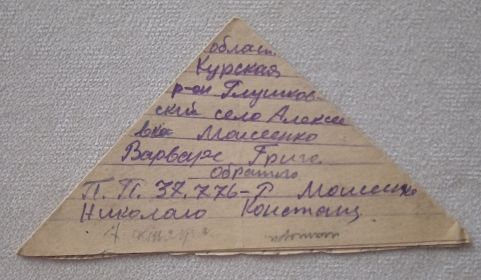 област.
Курская
р-он Глушков-
ский село Алексе
вка Моисеенко
Варваре Григо.
обратно
П. П. 37.776-Р Моисеенко
Николаю Констан
4